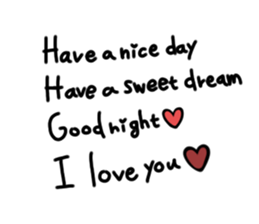 Have a nice day
Have a sweet dream
Good night
I love you